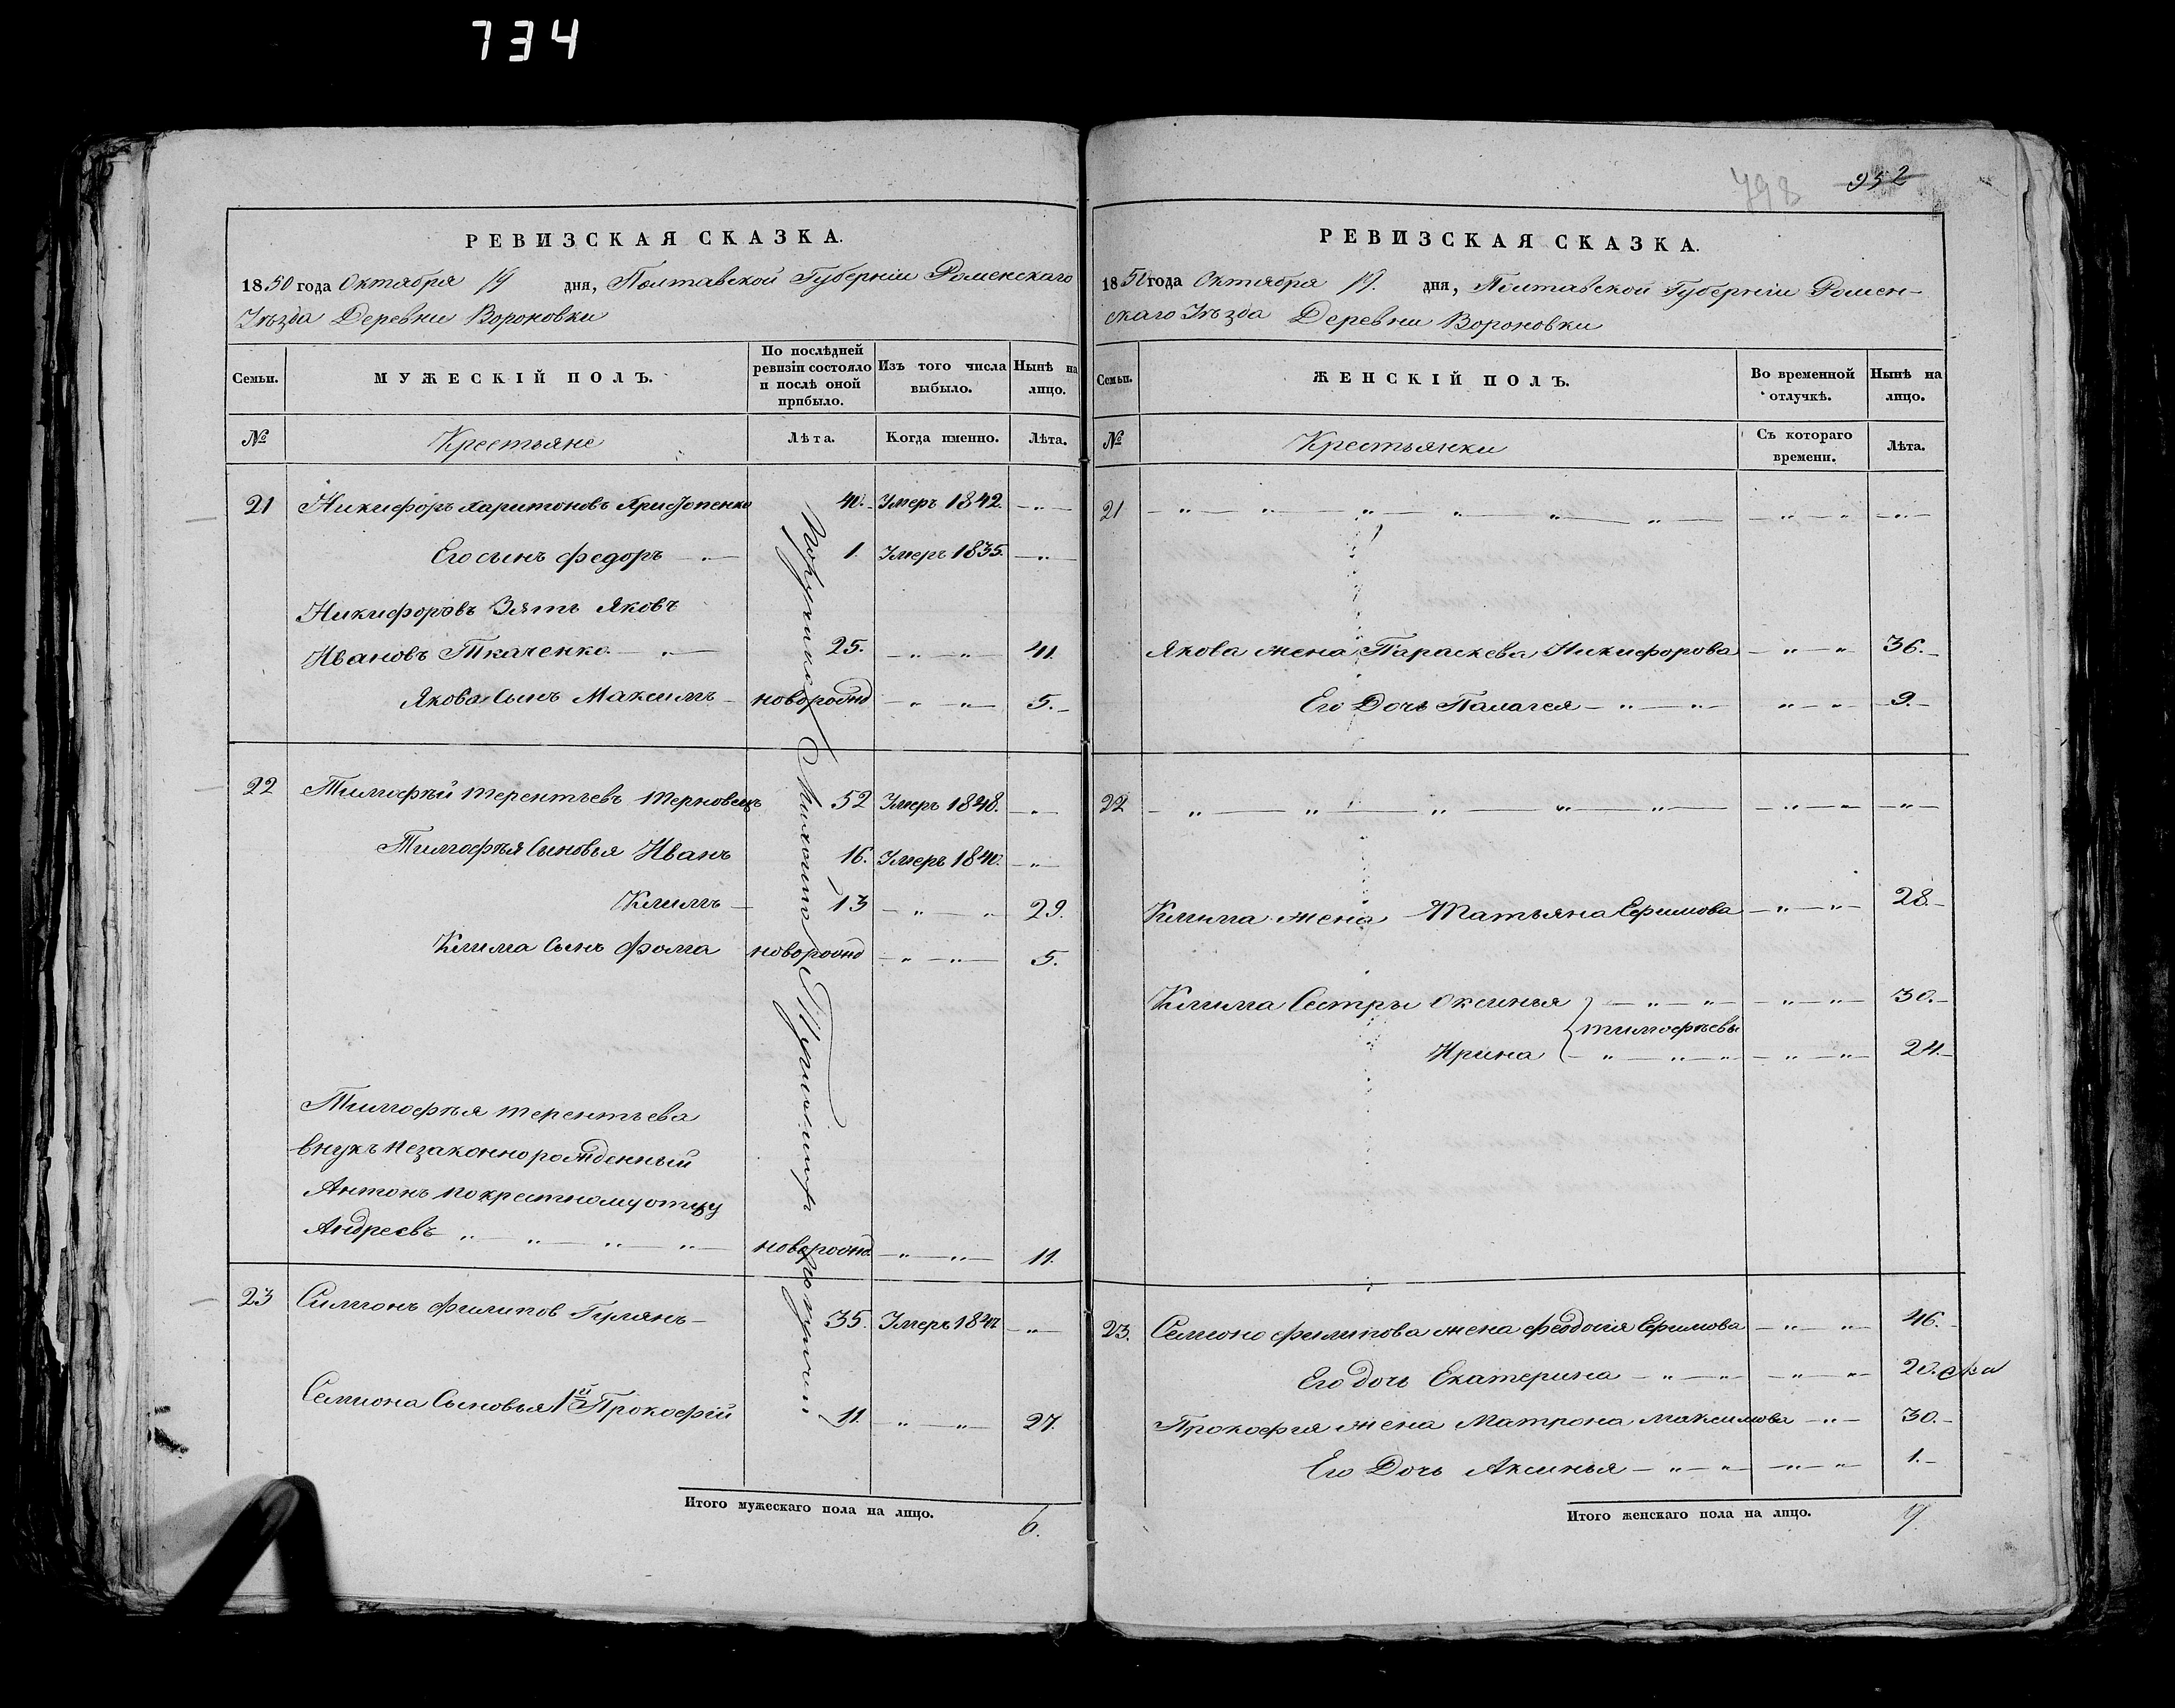 734
РЕВИЗСКАЯ СКАЗКА.
1850 года Октября 19 дня, Полтавской Губерніи Роменскаго
Уѣзда Деревни Вороновки
Семьи.
МУЖЕСКІЙ ПОЛЪ.
По послѣдней ревизіи состояло и послѣ оной прибыло.
Изъ того числа выбыло.
Нынѣ на лицо.
№ Крестьяне Лѣта. Когда именно. Лѣта.
21 Никифоръ Харитоновъ 41. Умеръ 1842. — „ —
Его сынъ Федоръ — „ — 1. Умеръ 1835. — „
Никифоровъ Зять Яковъ
Ивановъ Ткаченко — „ — 25. — „ — „ — 41.
Якова Сынъ Максимъ — новорожд — „ — „ — 5.
22 Тимофѣй Терентьевъ Терновецъ 52 Умеръ 1848. — „ —
Тимофѣя Сыновья Иванъ 16. Умеръ 1840. — „ —
Климъ — 13 — „ — „ 29.
Клима Сынъ Фома новорожд — „ — „ — 5.
Тимофѣя Терентьева
внукъ незаконнорожденный
Антонъ по крестному отцу
Андреевъ „ — „ — „ — „ — новорожд — „ — „ — 11.
23 Симіонъ Филипов Гулянъ — 35. Умеръ 1847 — „ —
Семиона Сыновья 1й Прокофій 11. „ — „ — 27.
Итого мужескаго пола на лицо. 6.
798 952
РЕВИЗСКАЯ СКАЗКА.
1850 года Октября 19. дня, Полтавской Губерніи Ромен-
скаго Уѣзда Деревни Вороновки
Семьи.
ЖЕНСКІЙ ПОЛЪ.
Во временной отлучкѣ.
Нынѣ на лицо.
№ Крестьянки Съ котораго времени. Лѣта.
21 — „ — „ — „ — „ — „ — „ — — „ — „ — „ —
Якова жена Параскева Никифорова — „ — „ 36. —
Его Дочь Палагея — „ — „ — „ — „ — 9. —
22 — „ — „ — „ — „ — „ — — „ — „ — „ —
Клима жена Татьяна Ефимова — „ — „ — 28. —
Клима Сестры Оксинья — „ — „ — — „ — „ — 30. —
Тимофѣевы
Ирина — „ — „ — „ — — „ — „ — 24. —
23. Семиона Филипова жена Феодосія Ефимова — „ — „ 46. —
Его дочь Екатерина — „ — „ — — „ — „ 20.
Прокофія жена Матрона Максимова — „ — 30. —
Его Дочь Аксинья — „ — „ — — „ — „ — 1. —
Итого женскаго пола на лицо. 9.